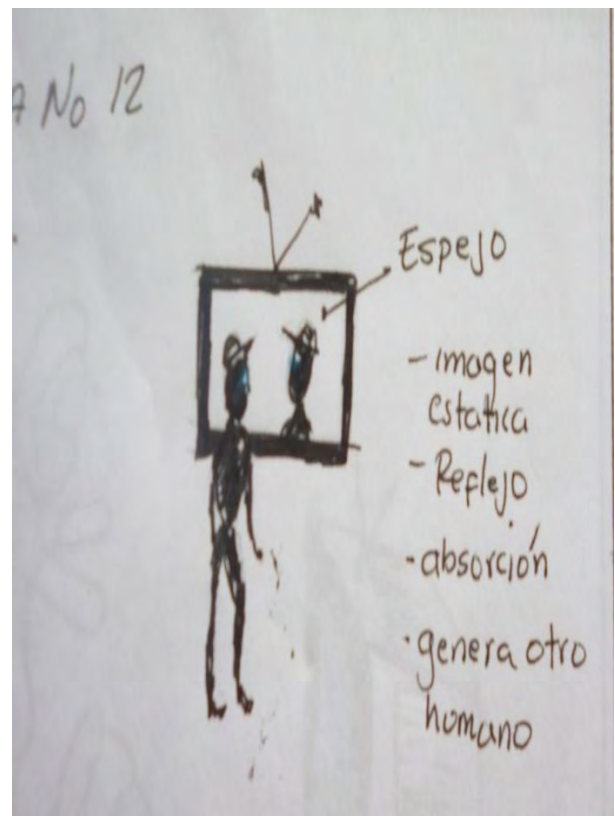 No 12
Espejo
- imagen
estatica
- Reflejo
- absorción
- genera otro
humano